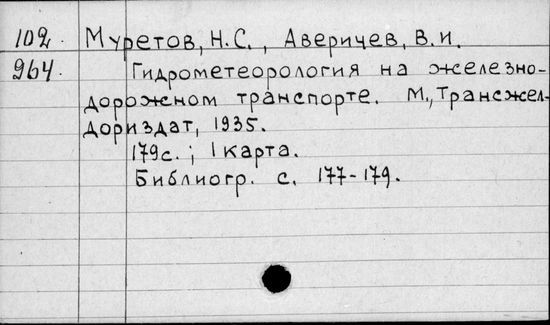 102. Муретов, Н.С., Аверичев, В.И.
964. Гидрометеорология на железно-
дорожном транспорте. М., Трансжел-
дориздат, 1935.
179с.; 1 карта.
Библиогр. с. 177-179.